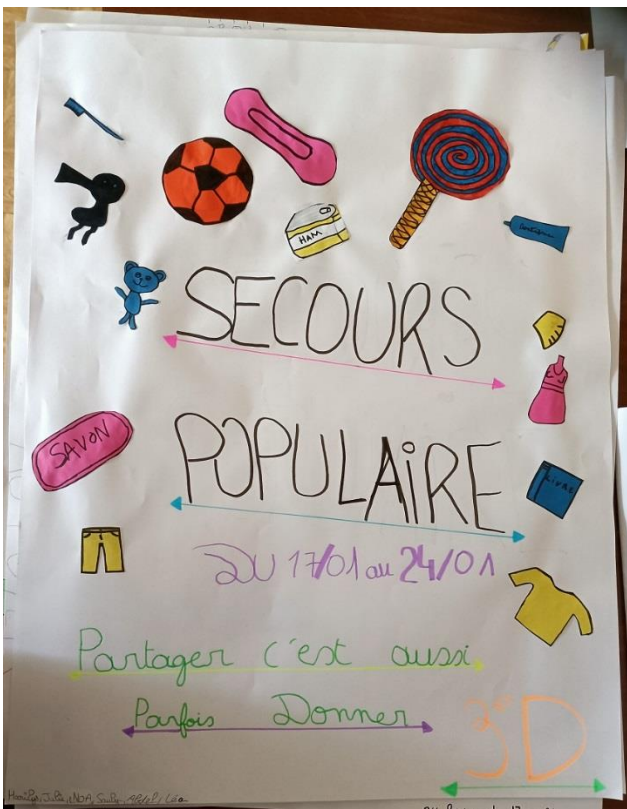 HAM
SECOURS
SAVON
POPULAIRE
LIVRE
DU 17/01 au 24/01
Partager c'est aussi
Parfois Donner
3e D